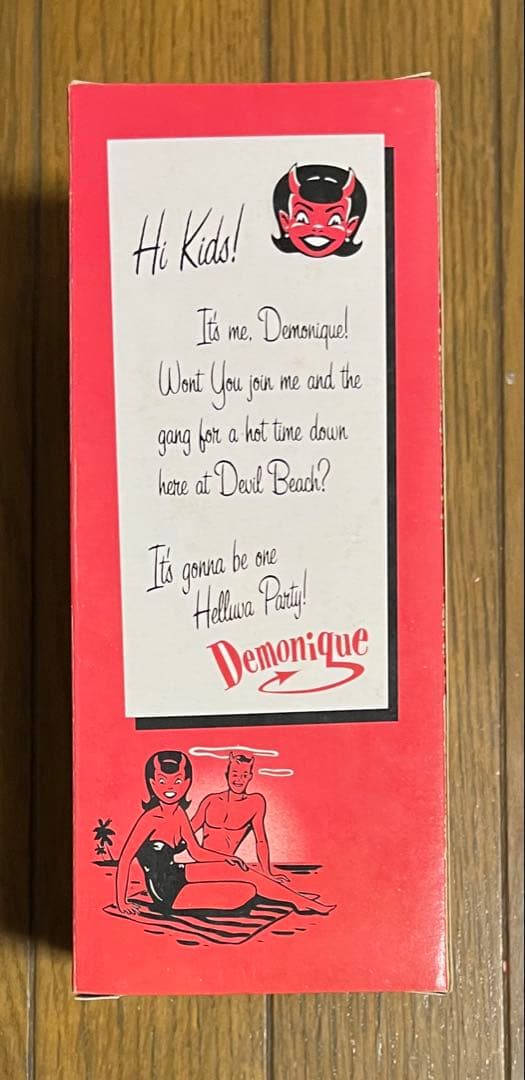 Hi Kids!
It's me, Demonique!
Wont You join me and the
gang for a hot time down
here at Devil Beach?
It's gonna be one
Helluva Party!
Demonique